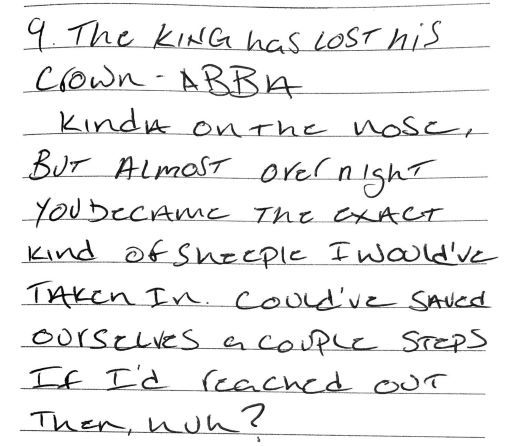 9. The KING has LOST his
Crown - ABBA
Kinda on the nose,
But Almost overnight
you became the exact
kind of sheeple I would've
taken in. Could've saved
ourselves a couple steps
If I'd reached out
Then, huh?